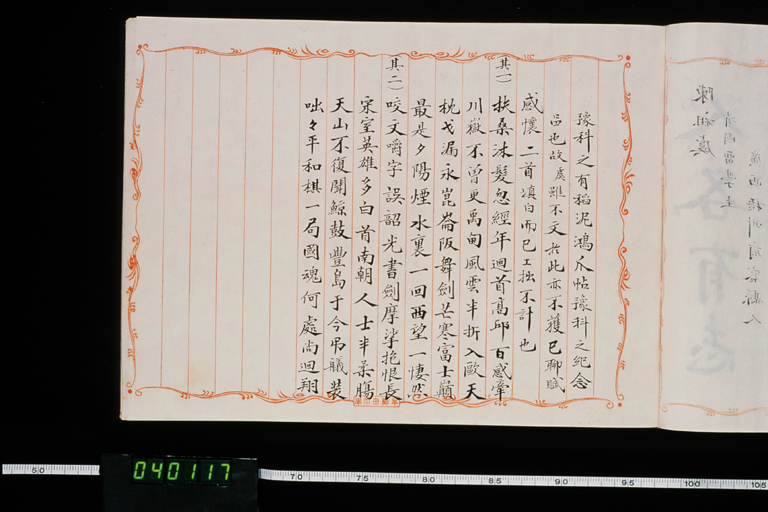 豫科之有稻泥鴻爪帖豫科之紀念
品也故虞雖不文於此亦不獲已聊賦
感懷二首塡白而已工拙不計也
其一)扶桑沐髮忽經年迴首高邱百感牽
川嶽不曾更禹甸風雲半折入歐天
枕戈漏永崑崙阪舞劍芒寒富士巔
最是夕陽煙水裏一回西望一悽然
其二)咬文嚼字誤韶光書劍摩挲抱恨長
宋室英雄多白首南朝人士半柔腸
天山不復聞鯨鼓豐島于今弔艤裝
咄々平和棋一局國魂何處尚迴翔
陳祖虞
清國留學生
廣西梧州府容縣人
有志
040117
50 70 75 80 85 90 95 100 105